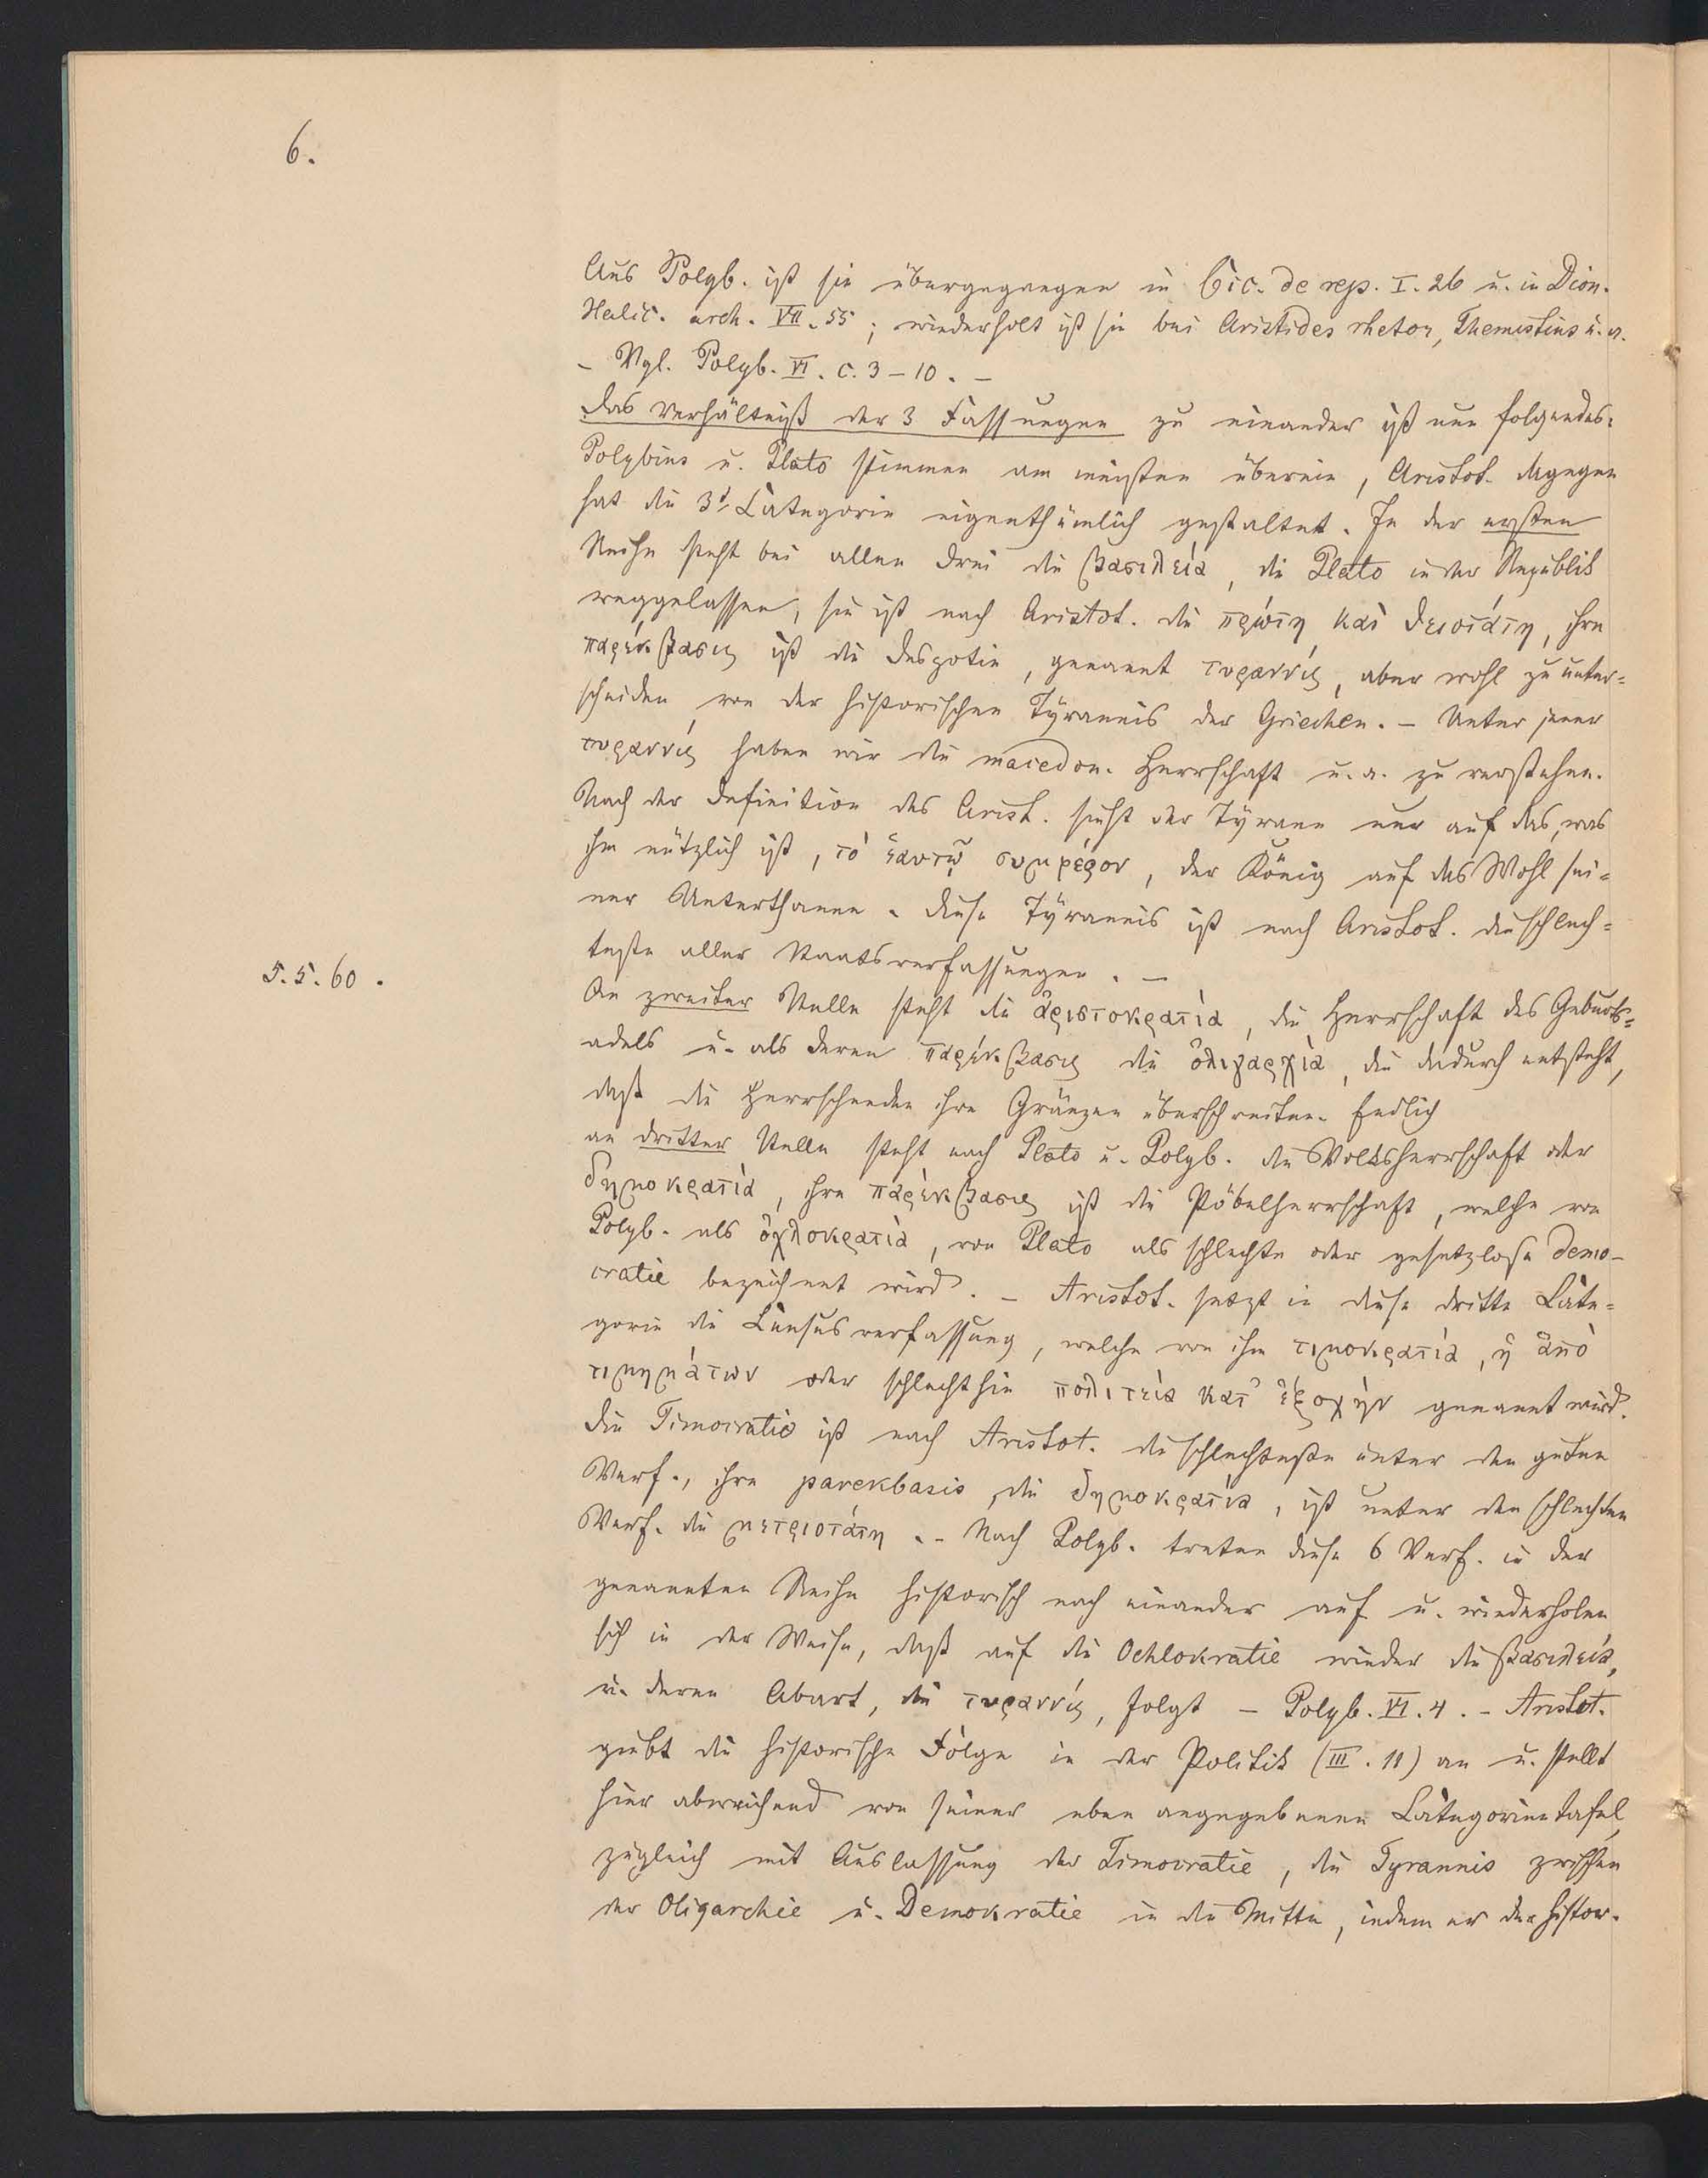 6.
Aus Polyb. ist sie übergegangen in Cic. de rep. I. 26 u. in Dion.
Halic. arch. VII. 55; wiederholt ist sie bei Aristides rhetor, Themistius u. a.
– Vgl. Polyb. VI. c. 3–10. –
Das Verhältniß der 3 Fassungen zu einander ist nun folgendes:
Polybius u. Plato stimmen am meisten überein, Aristot. dagegen
hat die 3t Categorie eigenthümlich gestaltet. In der ersten
Reihe steht bei allen drei die βασιλεία, die Plato in der Republik
weggelassen, sie ist nach Aristot. die πρώτη καὶ θειοτάτη, ihre
παρέκβασις ist die Despotie, genannt τυραννίς, aber wohl zu unter=
scheiden von der historischen Tyrannis der Griechen. – Unter jener
τυραννίς haben wir die macedon. Herrschaft u. a. zu verstehen.
Nach der Definition des Arist. sieht der Tyrann nur auf das, was
ihm nützlich ist, τὸ ἑαυτῷ συμφέρον, der König auf das Wohl sei=
ner Unterthanen. Diese Tyrannis ist nach Aristot. die schlech=
teste aller Staatsverfassungen. –
5.5.60.
An zweiter Stelle steht die ἀριστοκρατία, die Herrschaft des Geburts=
adels u. als deren παρέκβασις die ὀλιγαρχία, die dadurch entsteht,
daß die Herrschenden ihre Gränzen überschreiten. Endlich
an dritter Stelle steht nach Plato u. Polyb. die Volksherrschaft oder
δημοκρατία, ihre παρέκβασις ist die Pöbelherrschaft, welche von
Polyb. als ὀχλοκρατία, von Plato als schlechte oder gesetzlose Demo-
cratie bezeichnet wird. – Aristot. setzt in diese dritte Cate=
gorie die Censusverfassung, welche von ihm τιμοκρατία, ἡ ἀπὸ
τιμημάτων oder schlechthin πολιτεία κατ᾽ ἐξοχήν genannt wird.
Die Timocratie ist nach Aristot. die schlechteste unter den guten
Verf., ihre parekbasis, die δημοκρατία, ist unter den schlechten
Verf. die μετριοτάτη. – Nach Polyb. treten diese 6 Verf. in der
genannten Reihe historisch nach einander auf u. wiederholen
sich in der Weise, daß auf die Ochlokratie wieder die βασιλεία,
u. deren Abart, die τυραννίς, folgt – Polyb. VI. 4. – Aristot.
giebt die historische Folge in der Politik (III. 11) an u. stellt
hier abweichend von seiner eben angegebenen Categorientafel,
zugleich mit Auslassung der Timocratie, die Tyrannis zwischen
der Oligarchie u. Demokratie in die Mitte, indem er der histor.